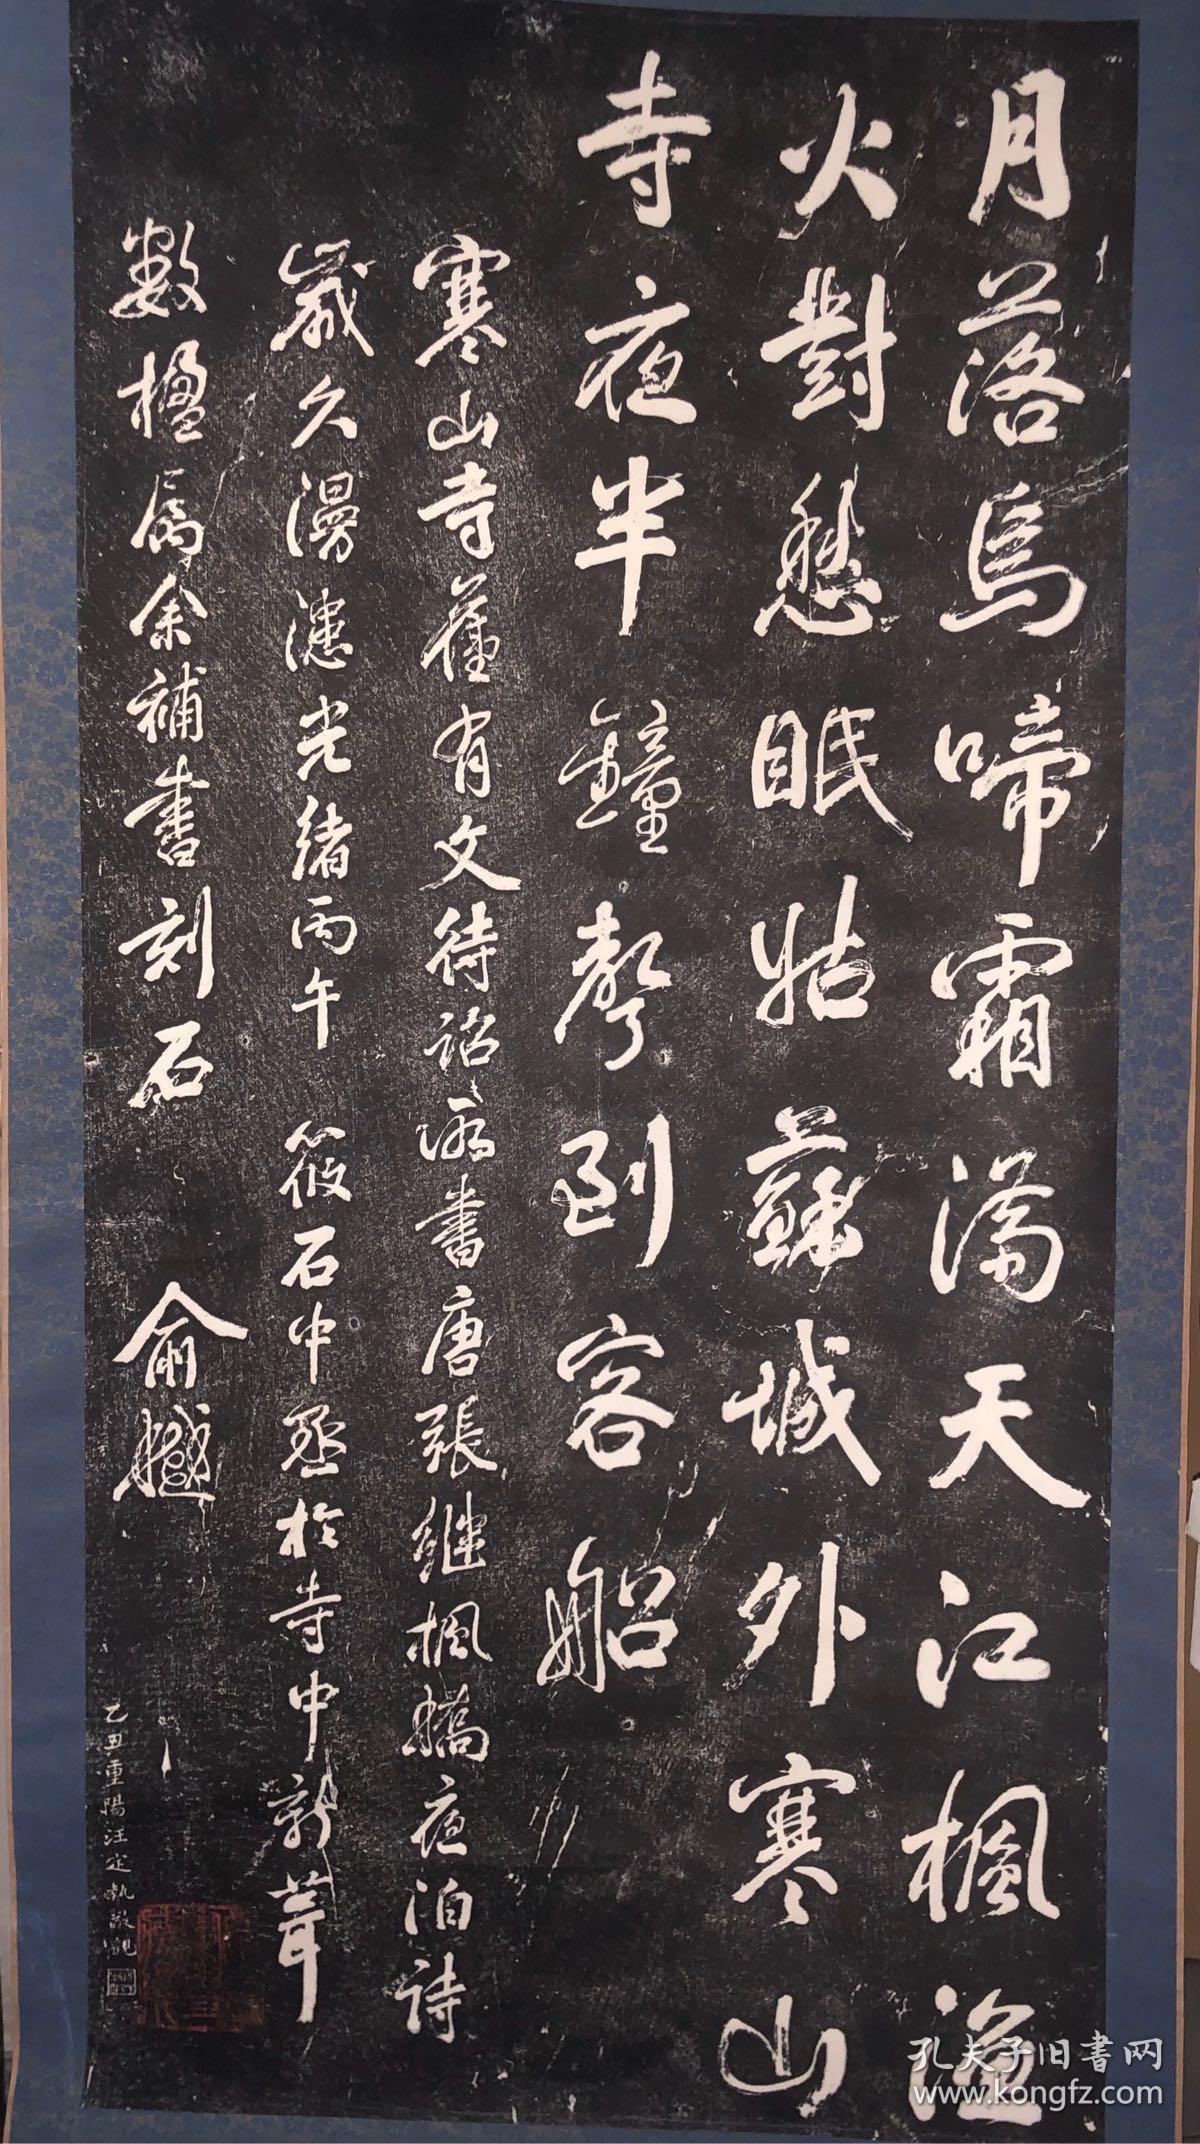 月落烏啼霜滿天江楓漁
火對愁眠姑蘇城外寒山
寺夜半鐘聲到客船
寒山寺舊有文待詔所書唐張繼楓橋夜泊詩
歲久漫漶光緒丙午筱石中丞於寺中新葺
數楹屬余補書刻石 俞樾
乙丑重陽汪定執敬觀
孔夫子旧書网
www.kongfz.com